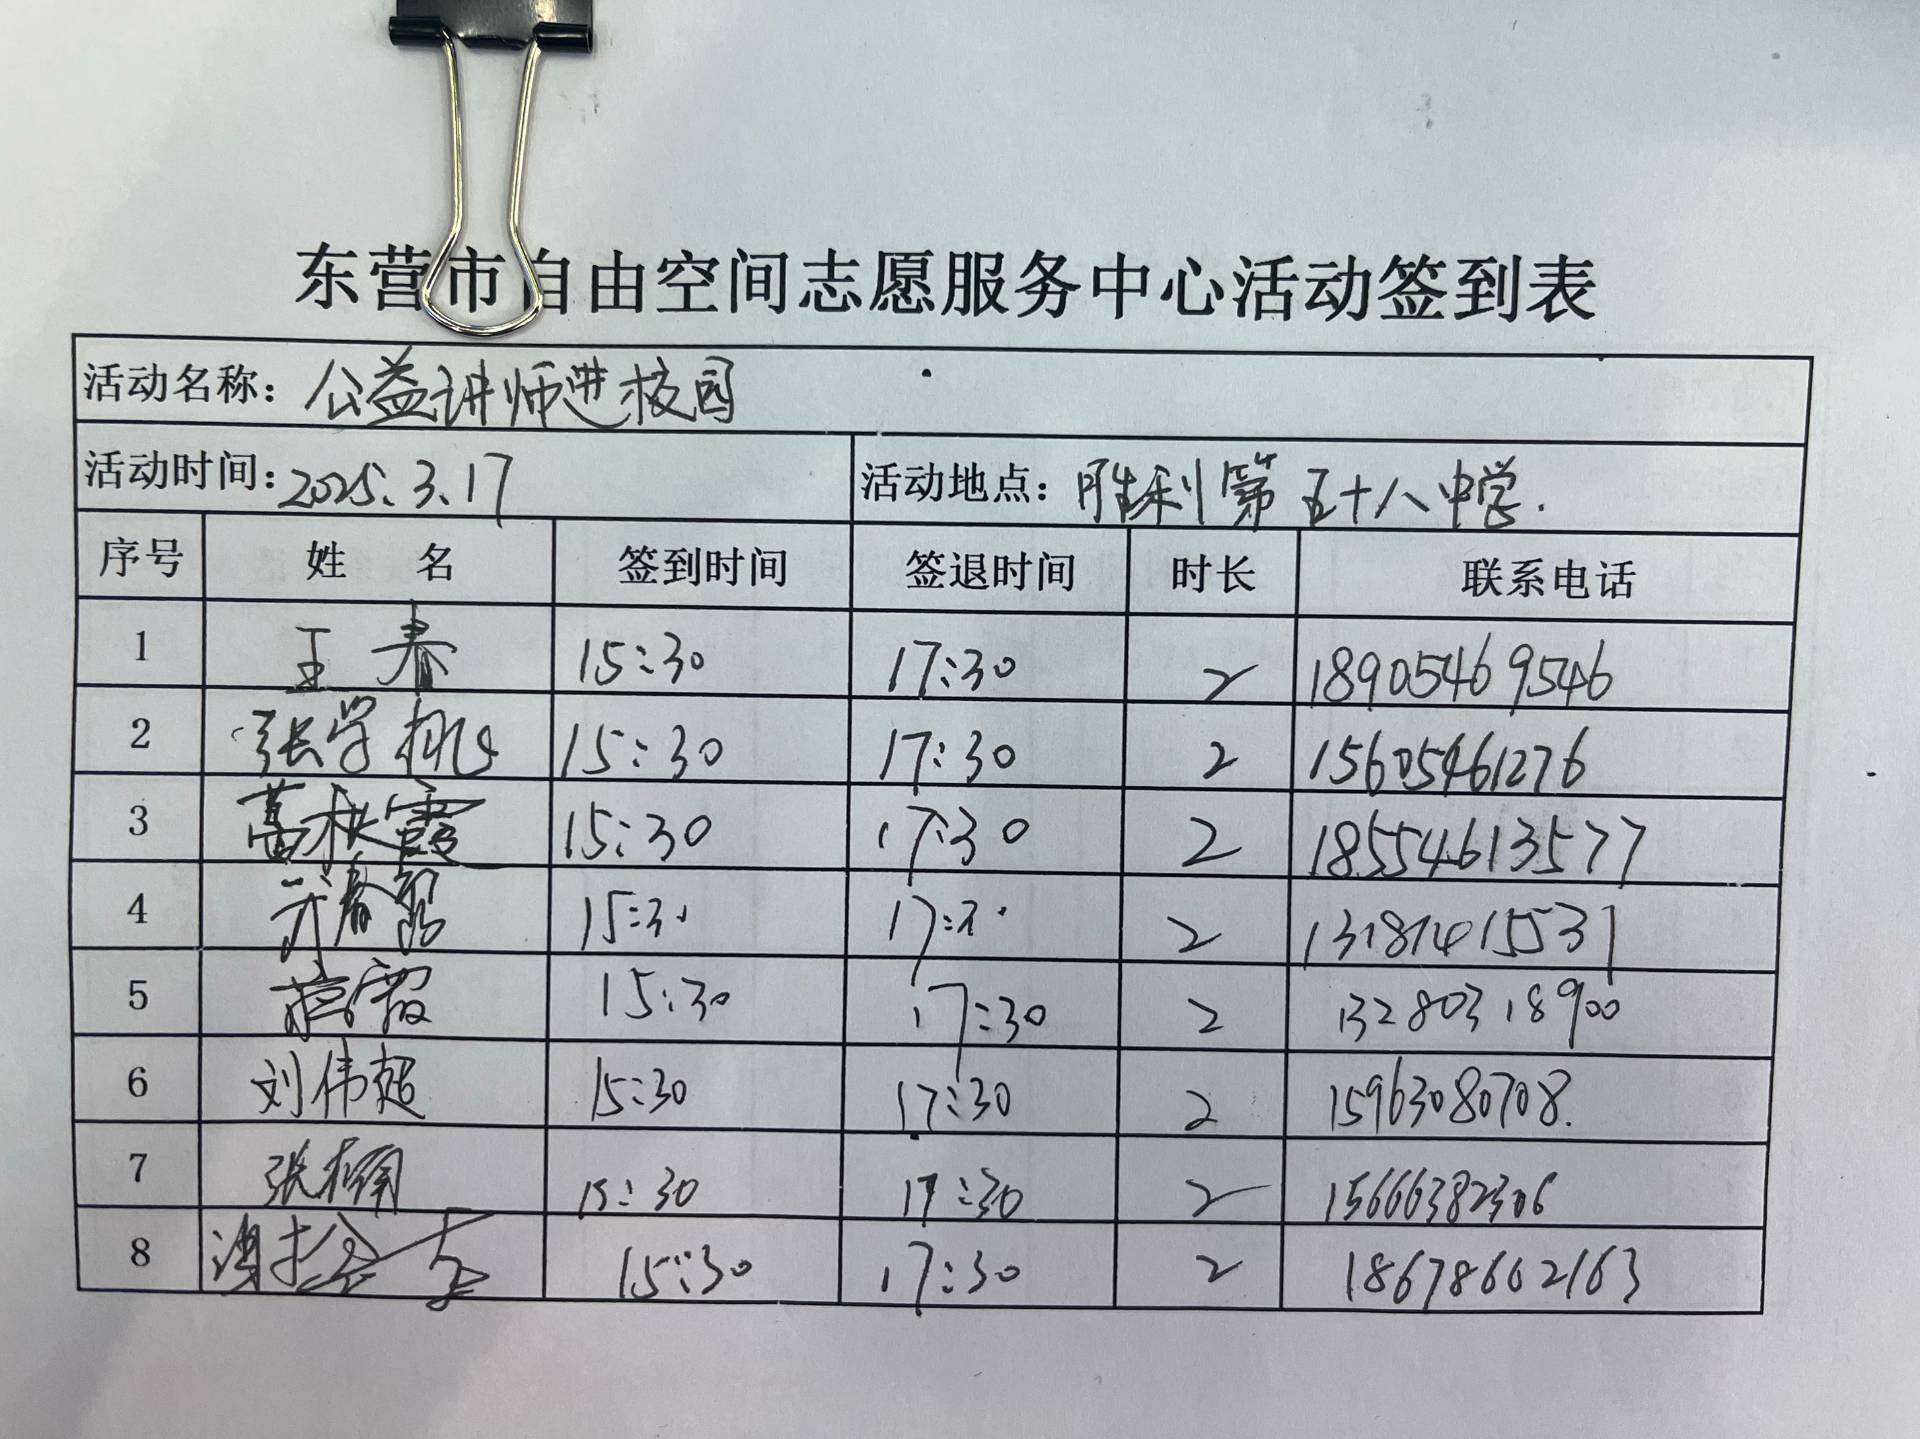 东营市自由空间志愿服务中心活动签到表
活动名称：公益讲师进校园
活动时间：2025.3.17 活动地点：胜利第五十八中学.
序号 姓 名 签到时间 签退时间 时长 联系电话
1 王春 15:30 17:30 2 18905469546
2 张学 15:30 17:30 2 15605461276
3 霞 15:30 17:30 2 18554613577
4 15:30 17:30 2 13181415531
5 霞 15:30 17:30 2 13280318900
6 刘伟超 15:30 17:30 2 15963080708.
7 张 15:30 17:30 2 15666382306
8 15:30 17:30 2 18678662163